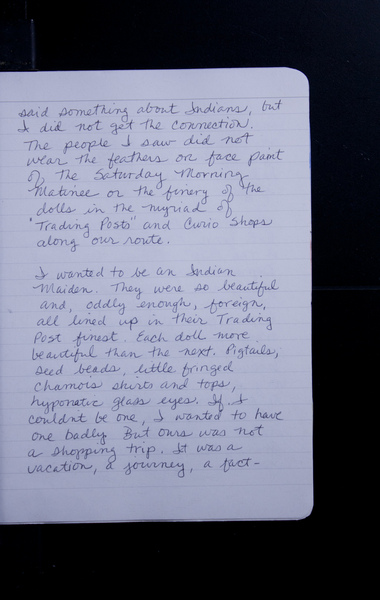 said something about Indians, but
I did not get the connection.
The people I saw did not
wear the feathers or face paint
of the Saturday Morning
Matinee or the finery of the
dolls in the myriad of
"Trading Posts" and Curio Shops
along our route.

I wanted to be an Indian
Maiden. They were so beautiful
and, oddly enough, foreign,
all lined up in their Trading
Post finest. Each doll more
beautiful than the next. Pigtails,
seed beads, little fringed
chamois shirts and tops,
hypnotic glass eyes. If I
couldnt be one, I wanted to have
one badly. But ours was not
a shopping trip. It was a
vacation, a journey, a fact-